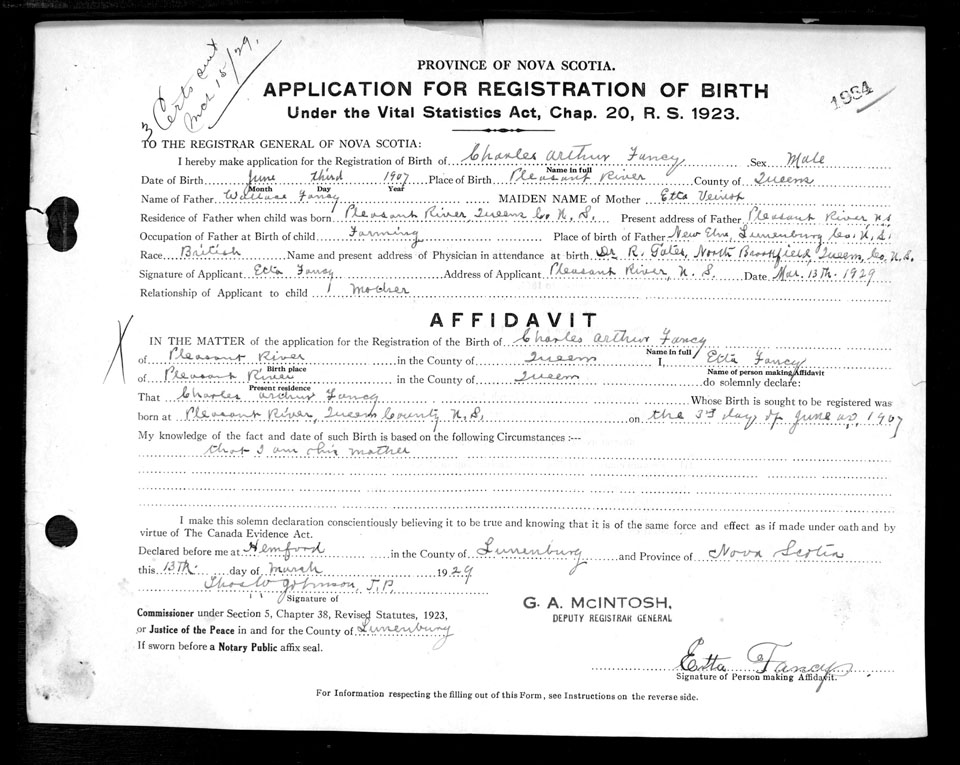 3 Certs sent
Mch 15/29.
PROVINCE OF NOVA SCOTIA.
APPLICATION FOR REGISTRATION OF BIRTH
Under the Vital Statistics Act, Chap. 20, R. S. 1923.
1934
TO THE REGISTRAR GENERAL OF NOVA SCOTIA:
I hereby make application for the Registration of Birth of Charles Arthur Fancy Sex Male
Name in full
Date of Birth June third 1907 Place of Birth Pleasant River County of Queens
Month Day Year
Name of Father Wallace Fancy MAIDEN NAME of Mother Etta Veinot
Residence of Father when child was born Pleasant River, Queens Co. N. S. Present address of Father Pleasant River N S
Occupation of Father at Birth of child Farming Place of birth of Father New Elm, Lunenburg Co. N. S.
Race British Name and present address of Physician in attendance at birth Dr R. Gates, North Brookfield, Queens, Co. N. S.
Signature of Applicant Etta Fancy Address of Applicant Pleasant River, N. S. Date Mar. 13th. 1929
Relationship of Applicant to child Mother
AFFIDAVIT
X
IN THE MATTER of the application for the Registration of the Birth of Charles Arthur Fancy
Name in full
of Pleasant River in the County of Queens I, Etta Fancy
Birth place Name of person making Affidavit
of Pleasant River in the County of Queens do solemnly declare:
Present residence
That Charles Arthur Fancy Whose Birth is sought to be registered was
born at Pleasant River, Queens County N. S. on the 3rd day of June AD, 1907
My knowledge of the fact and date of such Birth is based on the following Circumstances :---
that I am his mother
I make this solemn declaration conscientiously believing it to be true and knowing that it is of the same force and effect as if made under oath and by
virtue of The Canada Evidence Act.
Declared before me at Hemford in the County of Lunenburg and Province of Nova Scotia
this 13th. day of March 1929
Thos W Johnson, J.P.
Signature of
G. A. McINTOSH,
DEPUTY REGISTRAR GENERAL
Commissioner under Section 5, Chapter 38, Revised Statutes, 1923,
or Justice of the Peace in and for the County of Lunenburg
If sworn before a Notary Public affix seal.
Etta Fancy
Signature of Person making Affidavit.
For Information respecting the filling out of this Form, see Instructions on the reverse side.